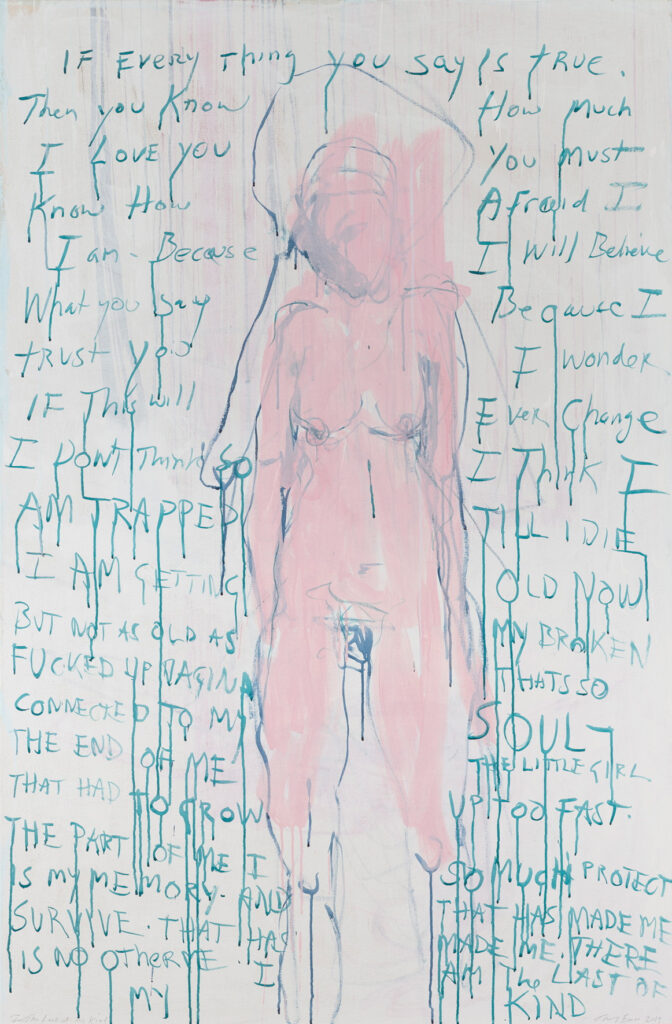 IF Every Thing you say Is true.
Then you Know How much
I Love you You must
Know How Afraid I
I am - Because I Will Believe
What you say Because I
trust you I wonder
IF This will Ever Change
I Dont Think So I Think I
AM TRAPPED TILL I DIE
I AM GETTING OLD NOW
BUT NOT AS OLD AS MY BROKEN
FUCKED UP VAGINA THATS SO
CONNECTED TO MY SOUL -
THE END OF ME THE LITTLE GIRL
THAT HAD TO GROW UP TOO FAST.
THE PART OF ME I SO MUCH PROTECT
IS MY MEMORY. AND THAT HAS MADE ME
SURVIVE. THAT HAS MADE ME. THERE
IS NO OTHER ME. I AM The LAST OF
MY KIND